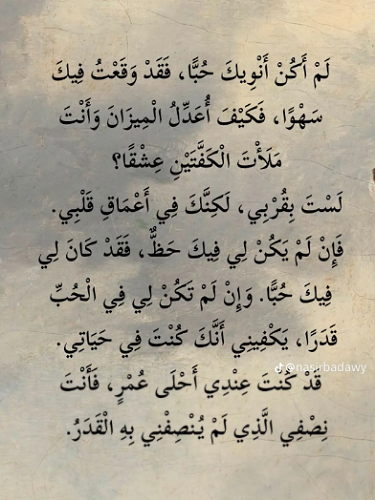 لَمْ أَكُنْ أَنْوِيكَ حُبًّا، فَقَدْ وَقَعْتُ فِيكَ
سَهْوًا، فَكَيْفَ أُعَدِّلُ الْمِيزَانَ وَأَنْتَ
مَلَأْتَ الْكَفَّتَيْنِ عِشْقًا؟
لَسْتَ بِقُرْبِي، لَكِنَّكَ فِي أَعْمَاقِ قَلْبِي.
فَإِنْ لَمْ يَكُنْ لِي فِيكَ حَظٌّ، فَقَدْ كَانَ لِي
فِيكَ حُبًّا. وَإِنْ لَمْ تَكُنْ لِي فِي الْحُبِّ
قَدَرًا، يَكْفِينِي أَنَّكَ كُنْتَ فِي حَيَاتِي.
@nasirbadawy
قَدْ كُنْتَ عِنْدِي أَحْلَى عُمْرٍ، فَأَنْتَ
نِصْفِي الَّذِي لَمْ يُنْصِفْنِي بِهِ الْقَدَرُ.